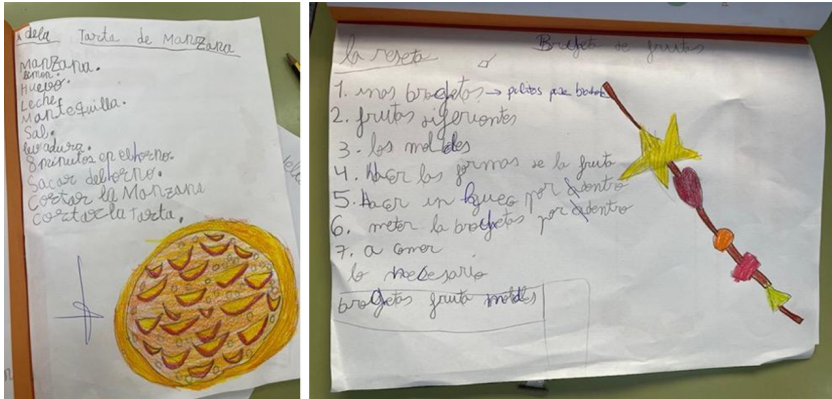 Adela
Tarta de Manzana
Manzana.
limon.
Huevo.
Leche,
Mantequilla.
Sal.
levadura.
8 minutos en el horno.
Sacar del horno.
Cortar la Manzana
Cortar la tarta.
la reseta
Brojeta de frutas
1. unas brogetas → palitos para
2. frutas diferiontes
3. los moldes
4. hacer las formas de la fruta
5. hacer un hueco por adentro
6. meter la brogetas por adentro
7. a comer
lo nesesario
brogetas fruta moldes